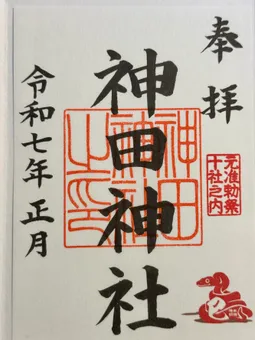 奉拝
元准勅祭
十社之内
神田神社
神田
神社
之印
令和七年正月